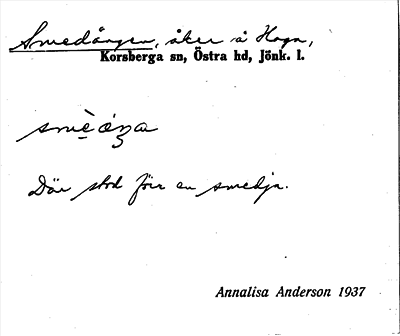 Smedången, åker å Haga,
Korsberga sn, Östra hd, Jönk. l.
Där stod förr en smedja.
Annalisa Anderson 1937